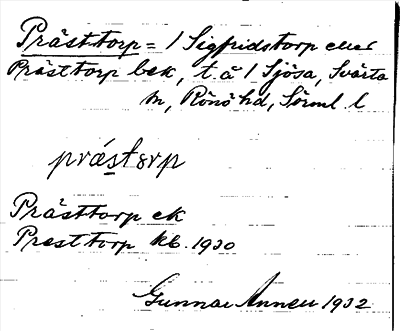 Prästtorp = 1 Sigfridstorp eller
Prästtorp bek, t. å 1 Sjösa, Svärta
sn, Rönö hd, Sörml. l
prástorp
Prästtorp ek
Presttorp kb. 1930
Gunnar Anneu 1932